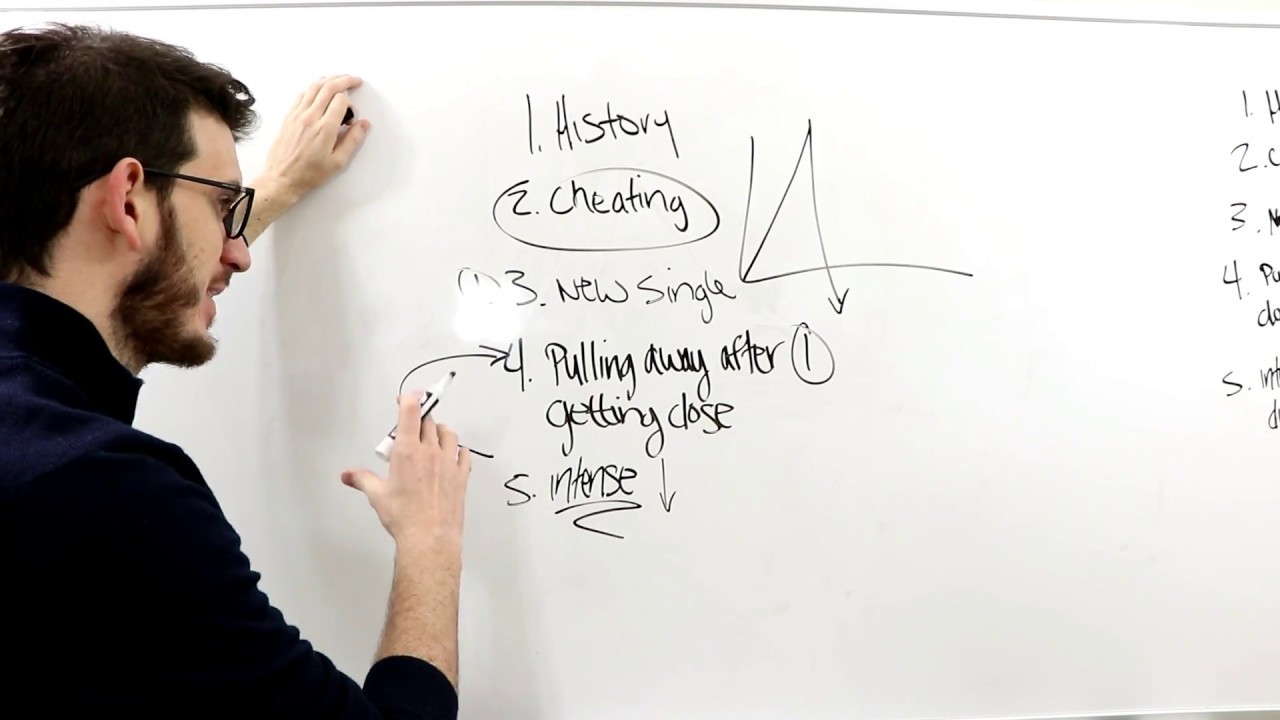 1. History
2. Cheating
① 3. New Single
4. Pulling away after ①
getting close
5. intense ↓
1. H
2. C
3. N
4. Pu
clo
5. int
d